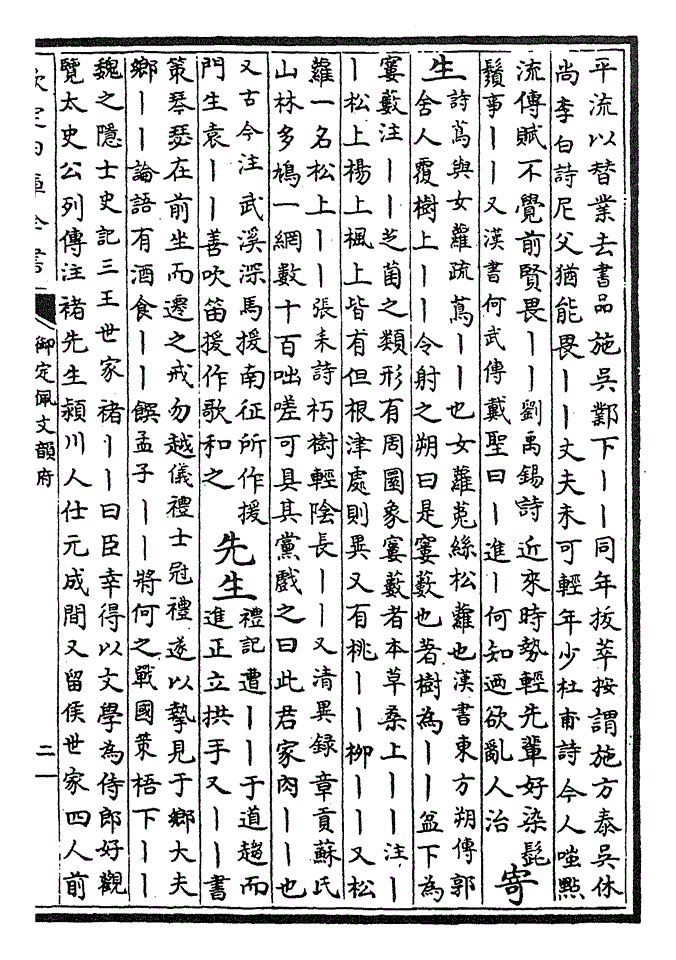 平流以替業去書品施吳鄴下｜｜同年拔萃按謂施方泰吳休
尚李白詩尼父猶能畏｜｜丈夫未可輕年少杜甫詩今人嗤點
流傳賦不覺前賢畏｜｜劉禹錫詩近來時勢輕先輩好染髭
鬚事｜｜又漢書何武傳戴聖曰｜進｜何知迺欲亂人治
寄
生
詩蔦與女蘿疏蔦｜｜也女蘿菟絲松蘿也漢書東方朔傳郭
舍人覆樹上｜｜令射之朔曰是寠藪也著樹為｜｜盆下為
寠藪注｜｜芝菌之類形有周圜象寠藪者本草桑上｜｜注｜
｜松上楊上楓上皆有但根津處則異又有桃｜｜柳｜｜又松
蘿一名松上｜｜張耒詩朽樹輕陰長｜｜又清異録章貢蘇氏
山林多鳩一網數十百咄嗟可具其黨戲之曰此君家肉｜｜也
又古今注武溪深馬援南征所作援
門生袁｜｜善吹笛援作歌和之
先生
禮記遭｜｜于道趨而
進正立拱手又｜｜書
策琴瑟在前坐而遷之戒勿越儀禮士冠禮遂以摯見于鄉大夫
鄉｜｜論語有酒食｜｜饌孟子｜｜將何之戰國策梧下｜｜
魏之隱士史記三王世家褚｜｜曰臣幸得以文學為侍郎好觀
覽太史公列傳注褚先生潁川人仕元成間又留侯世家四人前
御定佩文韻府
二